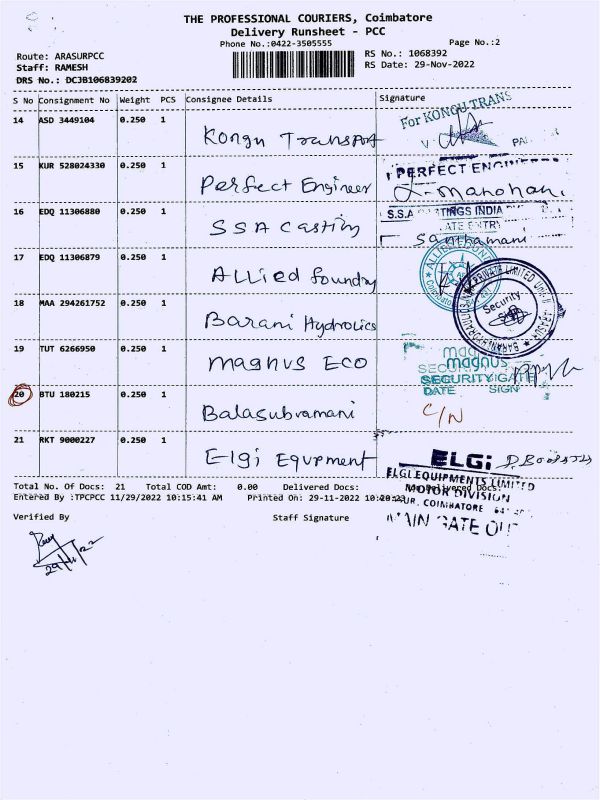 THE PROFESSIONAL COURIERS, Coimbatore
Delivery Runsheet - PCC
Phone No.:0422-3505555 Page No.:2
Route: ARASURPCC RS No.: 1068392
Staff: RAMESH RS Date: 29-Nov-2022
DRS No.: DCJB106839202
S No Consignment No Weight PCS Consignee Details Signature
14 ASD 3449104 0.250 1 Kongu Transport For KONGU TRANS
15 KUR 528024330 0.250 1 Perfect Engineer PERFECT
16 EDQ 11306880 0.250 1 SSA Casting S.S.A TINGS INDIA
Santhamani
17 EDQ 11306879 0.250 1 Allied foundry ALLIED
18 MAA 294261752 0.250 1 Barani Hydrolics PRIVATE LIMITED Security
19 TUT 6266950 0.250 1 magnus ECO magnus
SECURITY
DATE SIGN
20 BTU 180215 0.250 1 Balasubramani C/N
21 RKT 9000227 0.250 1 Elgi Equpment ELGi
ELGI EQUIPMENTS LIMITED
Total No. Of Docs: 21 Total COD Amt: 0.00 Delivered Docs: Docs:
MOTOR DIVISION
Entered By :TPCPCC 11/29/2022 10:15:41 AM Printed On: 29-11-2022 10:20:23
COIMBATORE
Verified By Staff Signature MAIN GATE
29/11/22